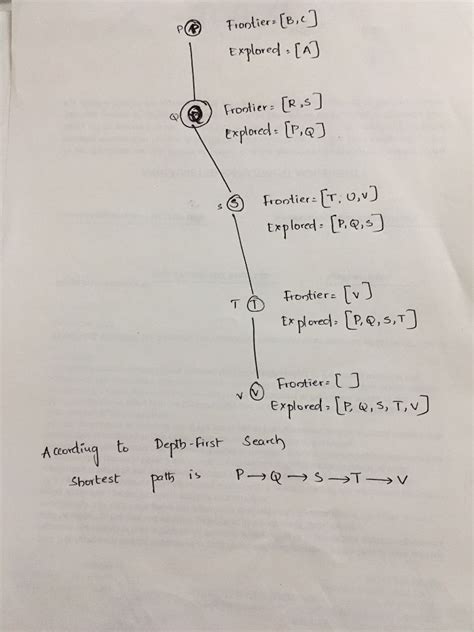 P P Frontier = [B,C]
Explored = [A]
Q Q Frontier = [R,S]
Explored = [P,Q]
S S Frontier = [T, U,V]
Explored = [P,Q,S]
T T Frontier = [V]
Explored = [P,Q,S,T]
V V Frontier = [ ]
Explored = [P, Q, S, T, V]
According to Depth-First Search
Shortest path is P → Q → S → T → V